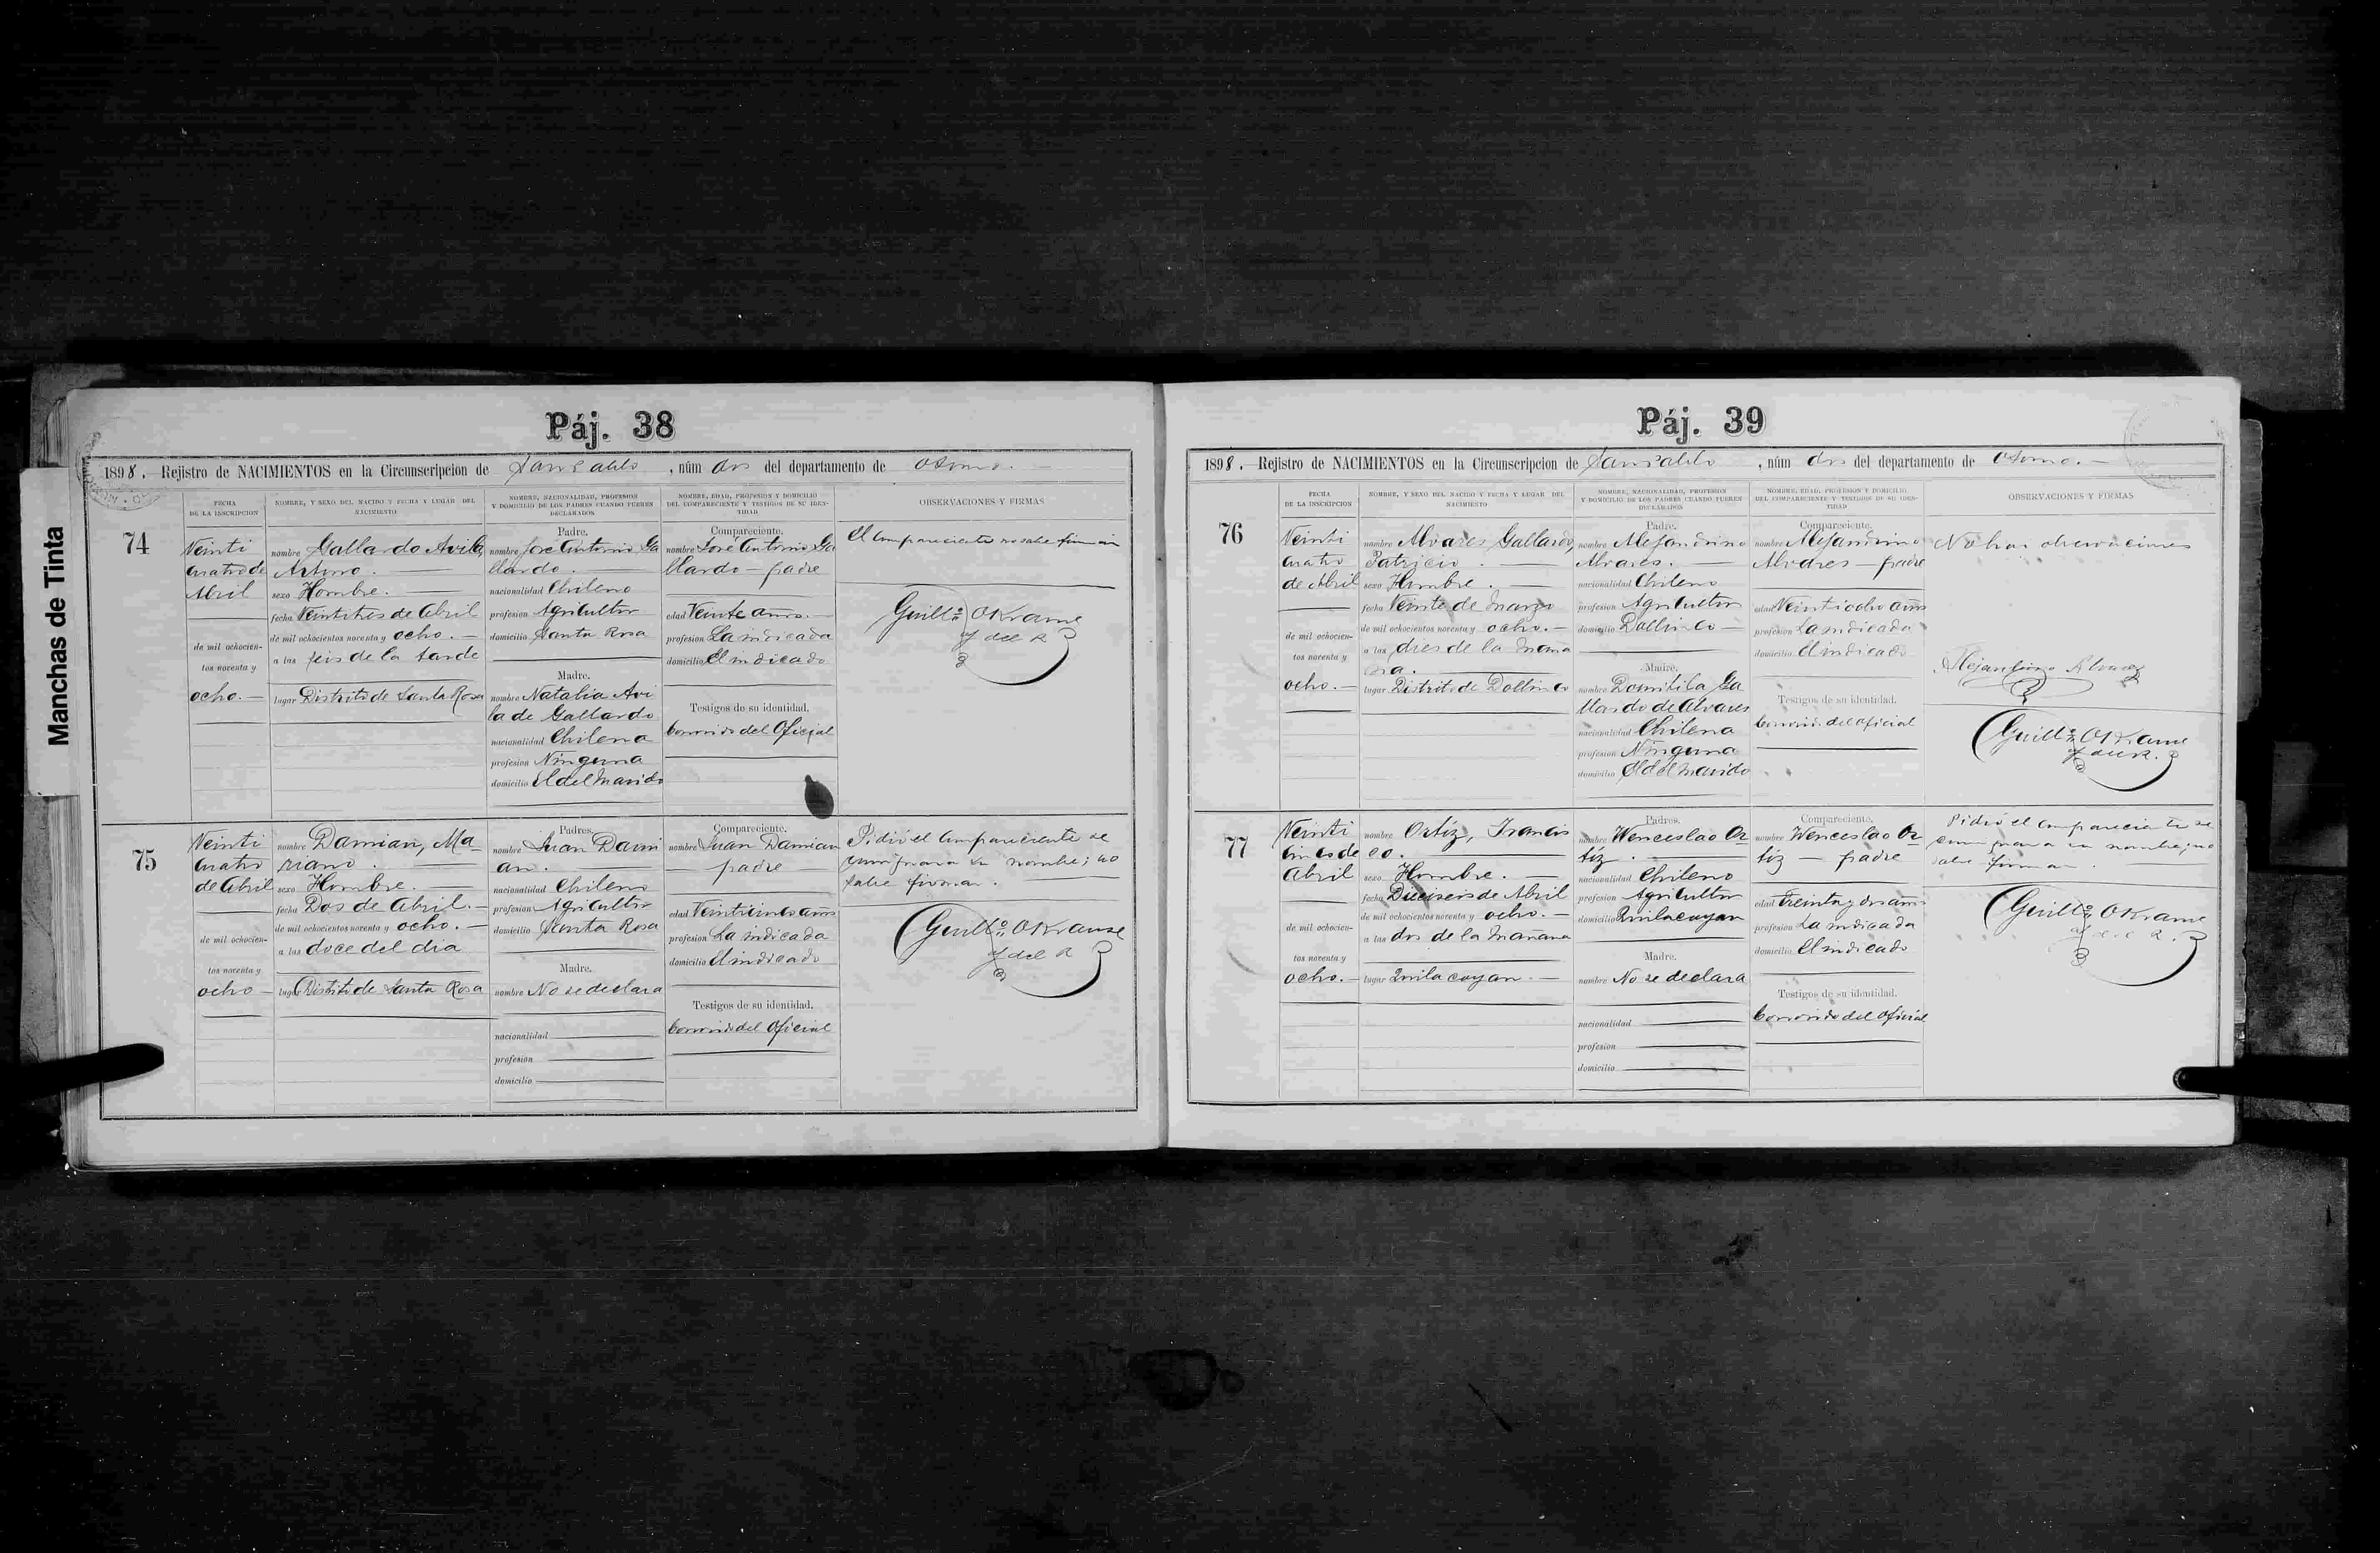 Manchas de Tinta
Páj. 38
1898. Rejistro de NACIMIENTOS en la Circunscripcion de San Pablo, núm dos del departamento de Osorno.
FECHA DE LA INSCRIPCION
NOMBRE, Y SEXO DEL NACIDO Y FECHA Y LUGAR DEL NACIMIENTO
NOMBRE, NACIONALIDAD, PROFESION Y DOMICILIO DE LOS PADRES CUANDO FUEREN DECLARADOS
NOMBRE, EDAD, PROFESION Y DOMICILIO DEL COMPARECIENTE Y TESTIGOS DE SU IDENTIDAD
OBSERVACIONES Y FIRMAS
74
Veinti
cuatro de
Abril
de mil ochocien-
tos noventa y
ocho.
nombre Gallardo Avila,
Arturo.
sexo Hombre.
fecha Veintitres de Abril
de mil ochocientos noventa y ocho.
a las seis de la tarde
lugar Distrito de Santa Rosa
Padre.
nombre José Antonio Ga
llardo.
nacionalidad Chileno
profesion Agricultor
domicilio Santa Rosa
Madre.
nombre Natalia Avi
la de Gallardo
nacionalidad Chilena
profesion Ninguna
domicilio El del marido
Compareciente.
nombre José Antonio Ga
llardo - padre
edad Veinte años.
profesion La indicada
domicilio El indicado
Testigos de su identidad.
Conocido del Oficial
El compareciente no sabe firmar
Guillo. O Krause
of del R
75
Veinti
cuatro
de Abril
de mil ochocien-
tos noventa y
ocho
nombre Damian, Ma-
riano.
sexo Hombre.
fecha Dos de Abril.
de mil ochocientos noventa y ocho.
a las doce del dia
lugar Distrito de Santa Rosa
Padres.
nombre Juan Dami
an.
nacionalidad Chileno
profesion Agricultor
domicilio Santa Rosa
Madre.
nombre No se declara
nacionalidad
profesion
domicilio
Compareciente.
nombre Juan Damian
padre
edad Veinticinco años
profesion La indicada
domicilio El indicado
Testigos de su identidad.
Conocido del Oficial
Pidió el compareciente se
consignara su nombre; no
sabe firmar.
Guillo. O Krause
of del R
Páj. 39
1898. Rejistro de NACIMIENTOS en la Circunscripcion de San Pablo, núm dos del departamento de Osorno.
FECHA DE LA INSCRIPCION
NOMBRE, Y SEXO DEL NACIDO Y FECHA Y LUGAR DEL NACIMIENTO
NOMBRE, NACIONALIDAD, PROFESION Y DOMICILIO DE LOS PADRES CUANDO FUEREN DECLARADOS
NOMBRE, EDAD, PROFESION Y DOMICILIO DEL COMPARECIENTE Y TESTIGOS DE SU IDENTIDAD
OBSERVACIONES Y FIRMAS
76
Veinti
cuatro
de Abril
de mil ochocien-
tos noventa y
ocho.
nombre Alvares Gallardo,
Patricio.
sexo Hombre.
fecha Veinte de Marzo
de mil ochocientos noventa y ocho.
a las dies de la maña
na.
lugar Distrito de Dollinco
Padre.
nombre Alejandrino
Alvares.
nacionalidad Chileno
profesion Agricultor
domicilio Dollinco
Madre.
nombre Domitila Ga
llardo de Alvares
nacionalidad Chilena
profesion Ninguna
domicilio El del marido
Compareciente.
nombre Alejandrino
Alvares - padre
edad Veintiocho años
profesion La indicada
domicilio El indicado
Testigos de su identidad.
Conocido del oficial
No hai observaciones
Alejandrino Alvarez
Guillo. O Krause
of del R.
77
Veinti
cinco de
Abril
de mil ochocien-
tos noventa y
ocho.
nombre Ortíz, Francis
co.
sexo Hombre.
fecha Dieciseis de Abril
de mil ochocientos noventa y ocho.
a las dos de la mañana
lugar Quilacoyan.
Padres.
nombre Wenceslao Or-
tíz.
nacionalidad Chileno
profesion Agricultor
domicilio Quilacoyan
Madre.
nombre No se declara
nacionalidad
profesion
domicilio
Compareciente.
nombre Wenceslao Or-
tíz - padre
edad Treinta y dos años
profesion La indicada
domicilio El indicado
Testigos de su identidad.
Conocido del Oficial
Pidió el compareciente se
consignara su nombre; no
sabe firmar
Guillo. O Krause
of del R.